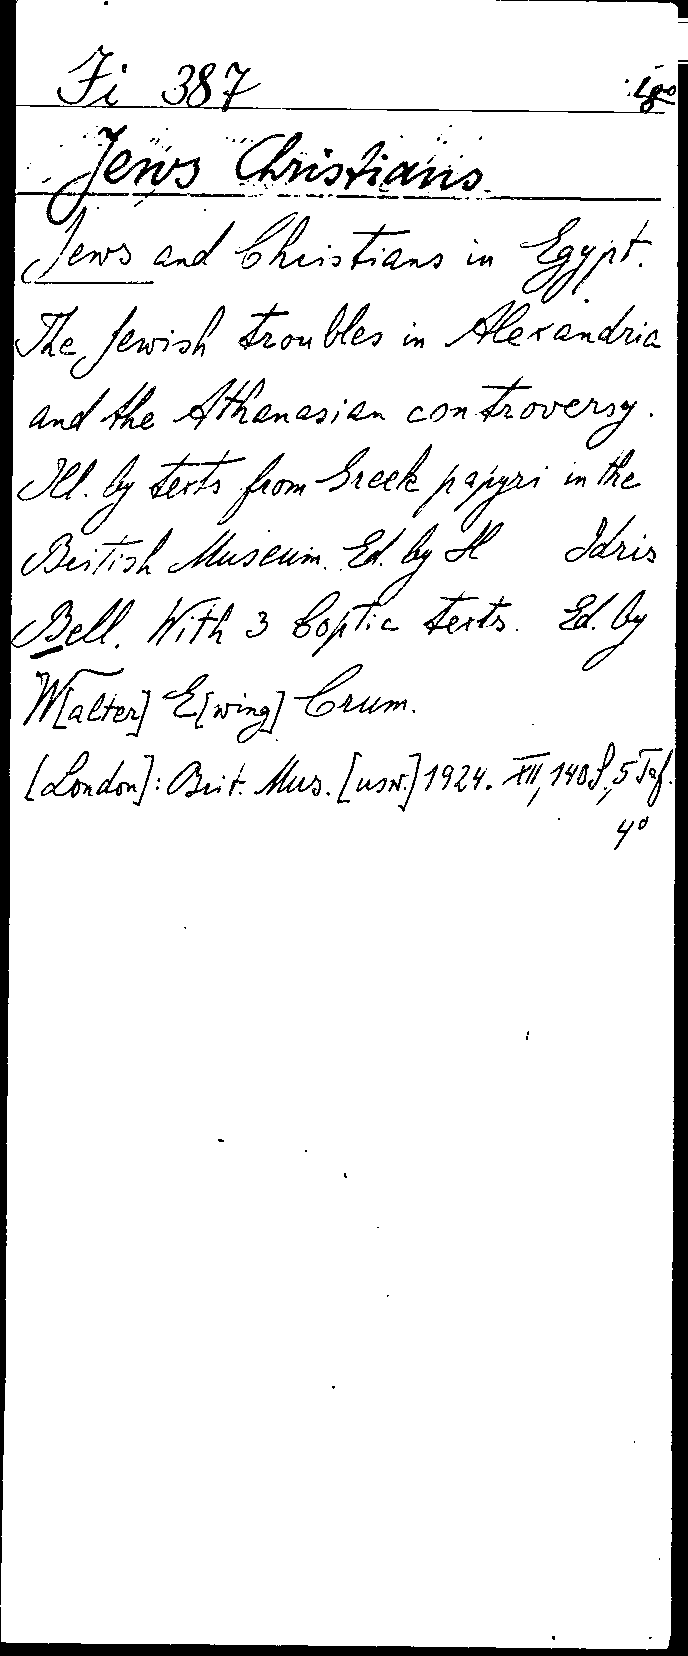 Fi 387
Jews Christians
Jews and Christians in Egypt.
The Jewish troubles in Alexandria
and the Athanasian controversy.
Ill. by texts from Greek papyri in the
British Museum. Ed. by H Idris
Bell. With 3 Coptic texts. Ed. by
W[alter] E[wing] Crum.
[London]: Brit. Mus. [usw.] 1924. XII, 140 S., 5 Taf.
4°